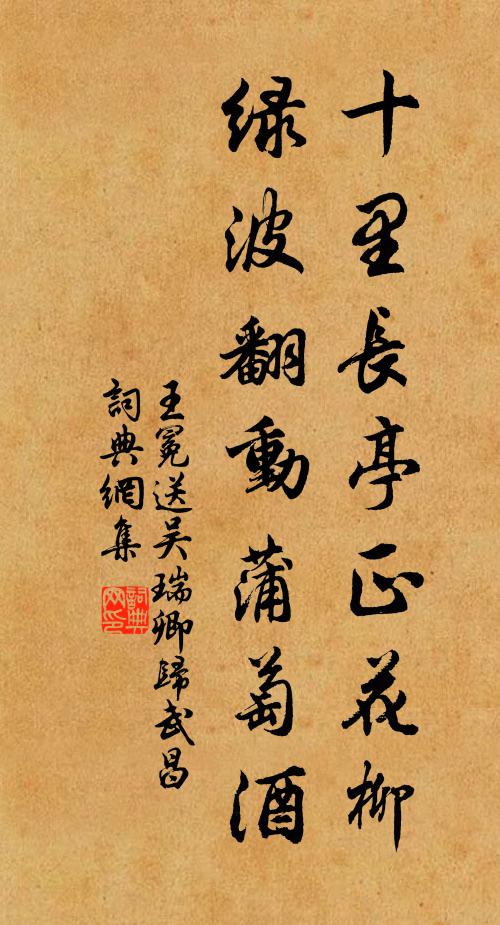 十里長亭正花柳
绿波翻動蒲萄酒
王冕送吴瑞卿歸武昌
詞典網集
詞典网印